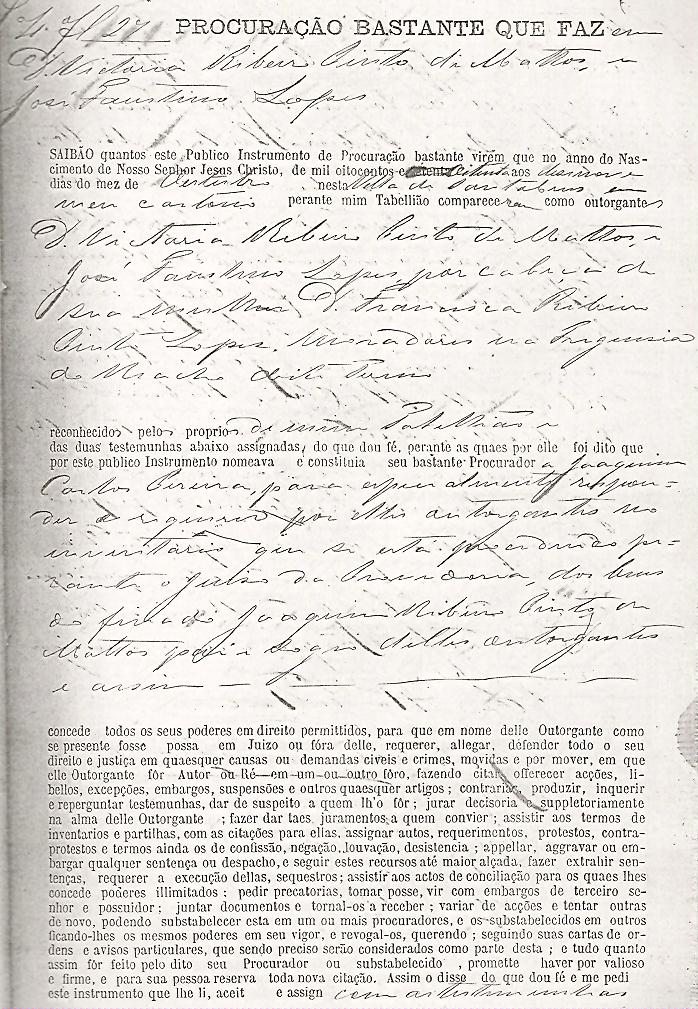 PROCURAÇÃO BASTANTE QUE FAZem
D. Victoria Ribeiro Pinto de Mattos, e
José Faustino Lopes
SAIBÃO quantos este Publico Instrumento de Procuração bastante virem que no anno do Nas-
cimento de Nosso Senhor Jesus Christo, de mil oitocentos e oitenta aos
dias do mez de nesta Villa de em
meu cartorio perante mim Tabellião compareceram como outorgantes
D. Victoria Ribeiro Pinto de Mattos e
José Faustino Lopes, por cabeça de
sua mulher D. Francisca Ribeiro
Pinto Lopes, moradores na Freguesia
do deste Termo
reconhecidos pelos proprios de mim Tabellião e
das duas testemunhas abaixo assignadas, do que dou fé, perante as quaes por elle foi dito que
por este publico Instrumento nomeava e constituia seu bastante Procurador a Joaquim
Carlos Pereira, para especialmente respon-
der e requerer por elles outorgantes no
inventário que se está procedendo pe-
rante o Juizo da Provedoria, dos bens
do finado Joaquim Ribeiro Pinto de
Mattos pai e sogro delles outorgantes
e assim
concede todos os seus poderes em direito permittidos, para que em nome delle Outorgante como
se presente fosse possa em Juizo ou fóra delle, requerer, allegar, défender todo o seu
direito e justiça em quaesquer causas ou demandas civeis e crimes, movidas e por mover, em que
elle Outorgante fôr Autor ou Ré em um ou outro fôro, fazendo citar, offerecer acções, li-
bellos, excepções, embargos, suspensões e outros quaesquer artigos ; contrariar, produzir, inquerir
e reperguntar testemunhas, dar de suspeito a quem lh'o fôr ; jurar decisoria suppletoriamente
na alma delle Outorgante ; fazer dar taes juramentos a quem convier ; assistir aos termos de
inventarios e partilhas, com as citações para ellas, assignar autos, requerimentos, protestos, contra-
protestos e termos ainda os de confissão, negação, louvação, desistencia ; appellar, aggravar ou em-
bargar qualquer sentença ou despacho, e seguir estes recursos até maior alçada, fazer extrahir sen-
tenças, requerer a execução dellas, sequestros ; assistir aos actos de conciliação para os quaes lhes
concede poderes illimitados ; pedir precatorias, tomar posse, vir com embargos de terceiro se-
nhor e possuidor ; juntar documentos e tornal-os a receber ; variar de acções e tentar outras
de novo, podendo substabelecer esta em um ou mais procuradores, e os substabelecidos em outros
ficando-lhes os mesmos poderes em seu vigor, e revogal-os, querendo ; seguindo suas cartas de or-
dens e avisos particulares, que sendo preciso serão considerados como parte desta ; e tudo quanto
assim fôr feito pelo dito seu Procurador ou substabelecido , promette haver por valioso
e firme, e para sua pessoa reserva toda nova citação. Assim o disse do que dou fé e me pedi
este instrumento que lhe li, aceit e assign com as testemunhas